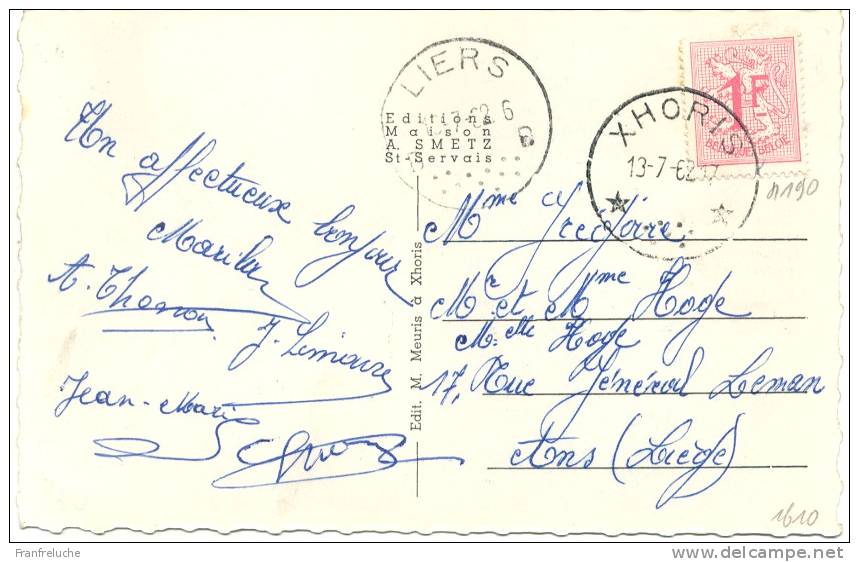 Un affectueux bonjour
Marilou
A. Thonon
J. Lemaire
Jean-Marie
Editions
Maison
A. SMETZ
St-Servais
Edit. M. Meuris à Xhoris
LIERS
XHORIS
13-7-62 17
1F
BELGIQUE-BELGIE
Mme Grégoire
Mr et Mme Hoge
Melle Hoge
17, Rue Général Leman
Ans (Liège)
1190
1610
Franfreluche
www.delcampe.net